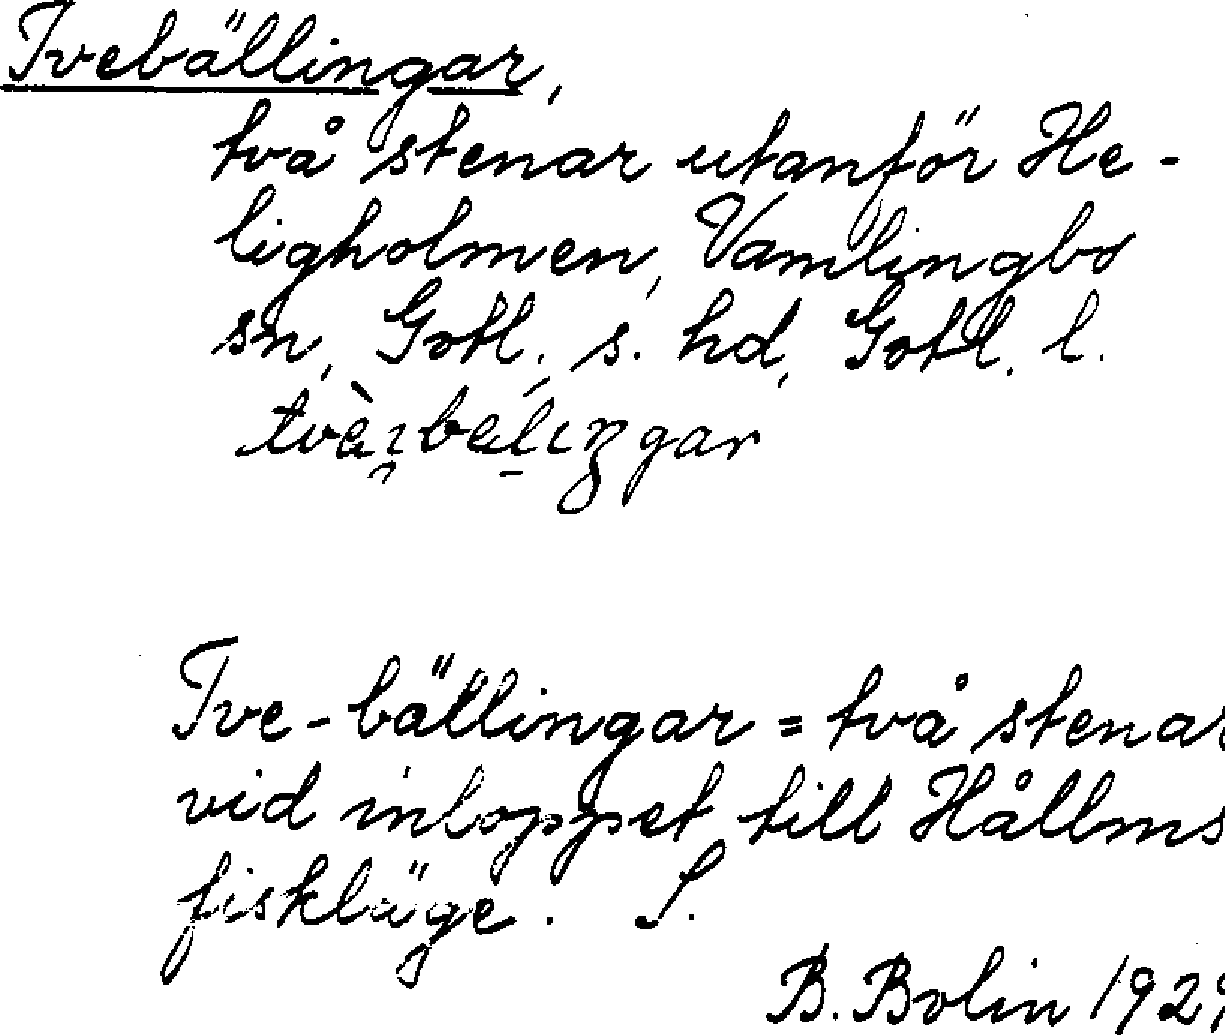 Tvebällingar,
två stenar utanför He-
ligholmen, Vamlingbo
sn, Gotl. s. hd, Gotl. l.
Tve-bällingar = två stenar
vid inloppet till Hållms
fiskläge. S.
B. Bolin 192